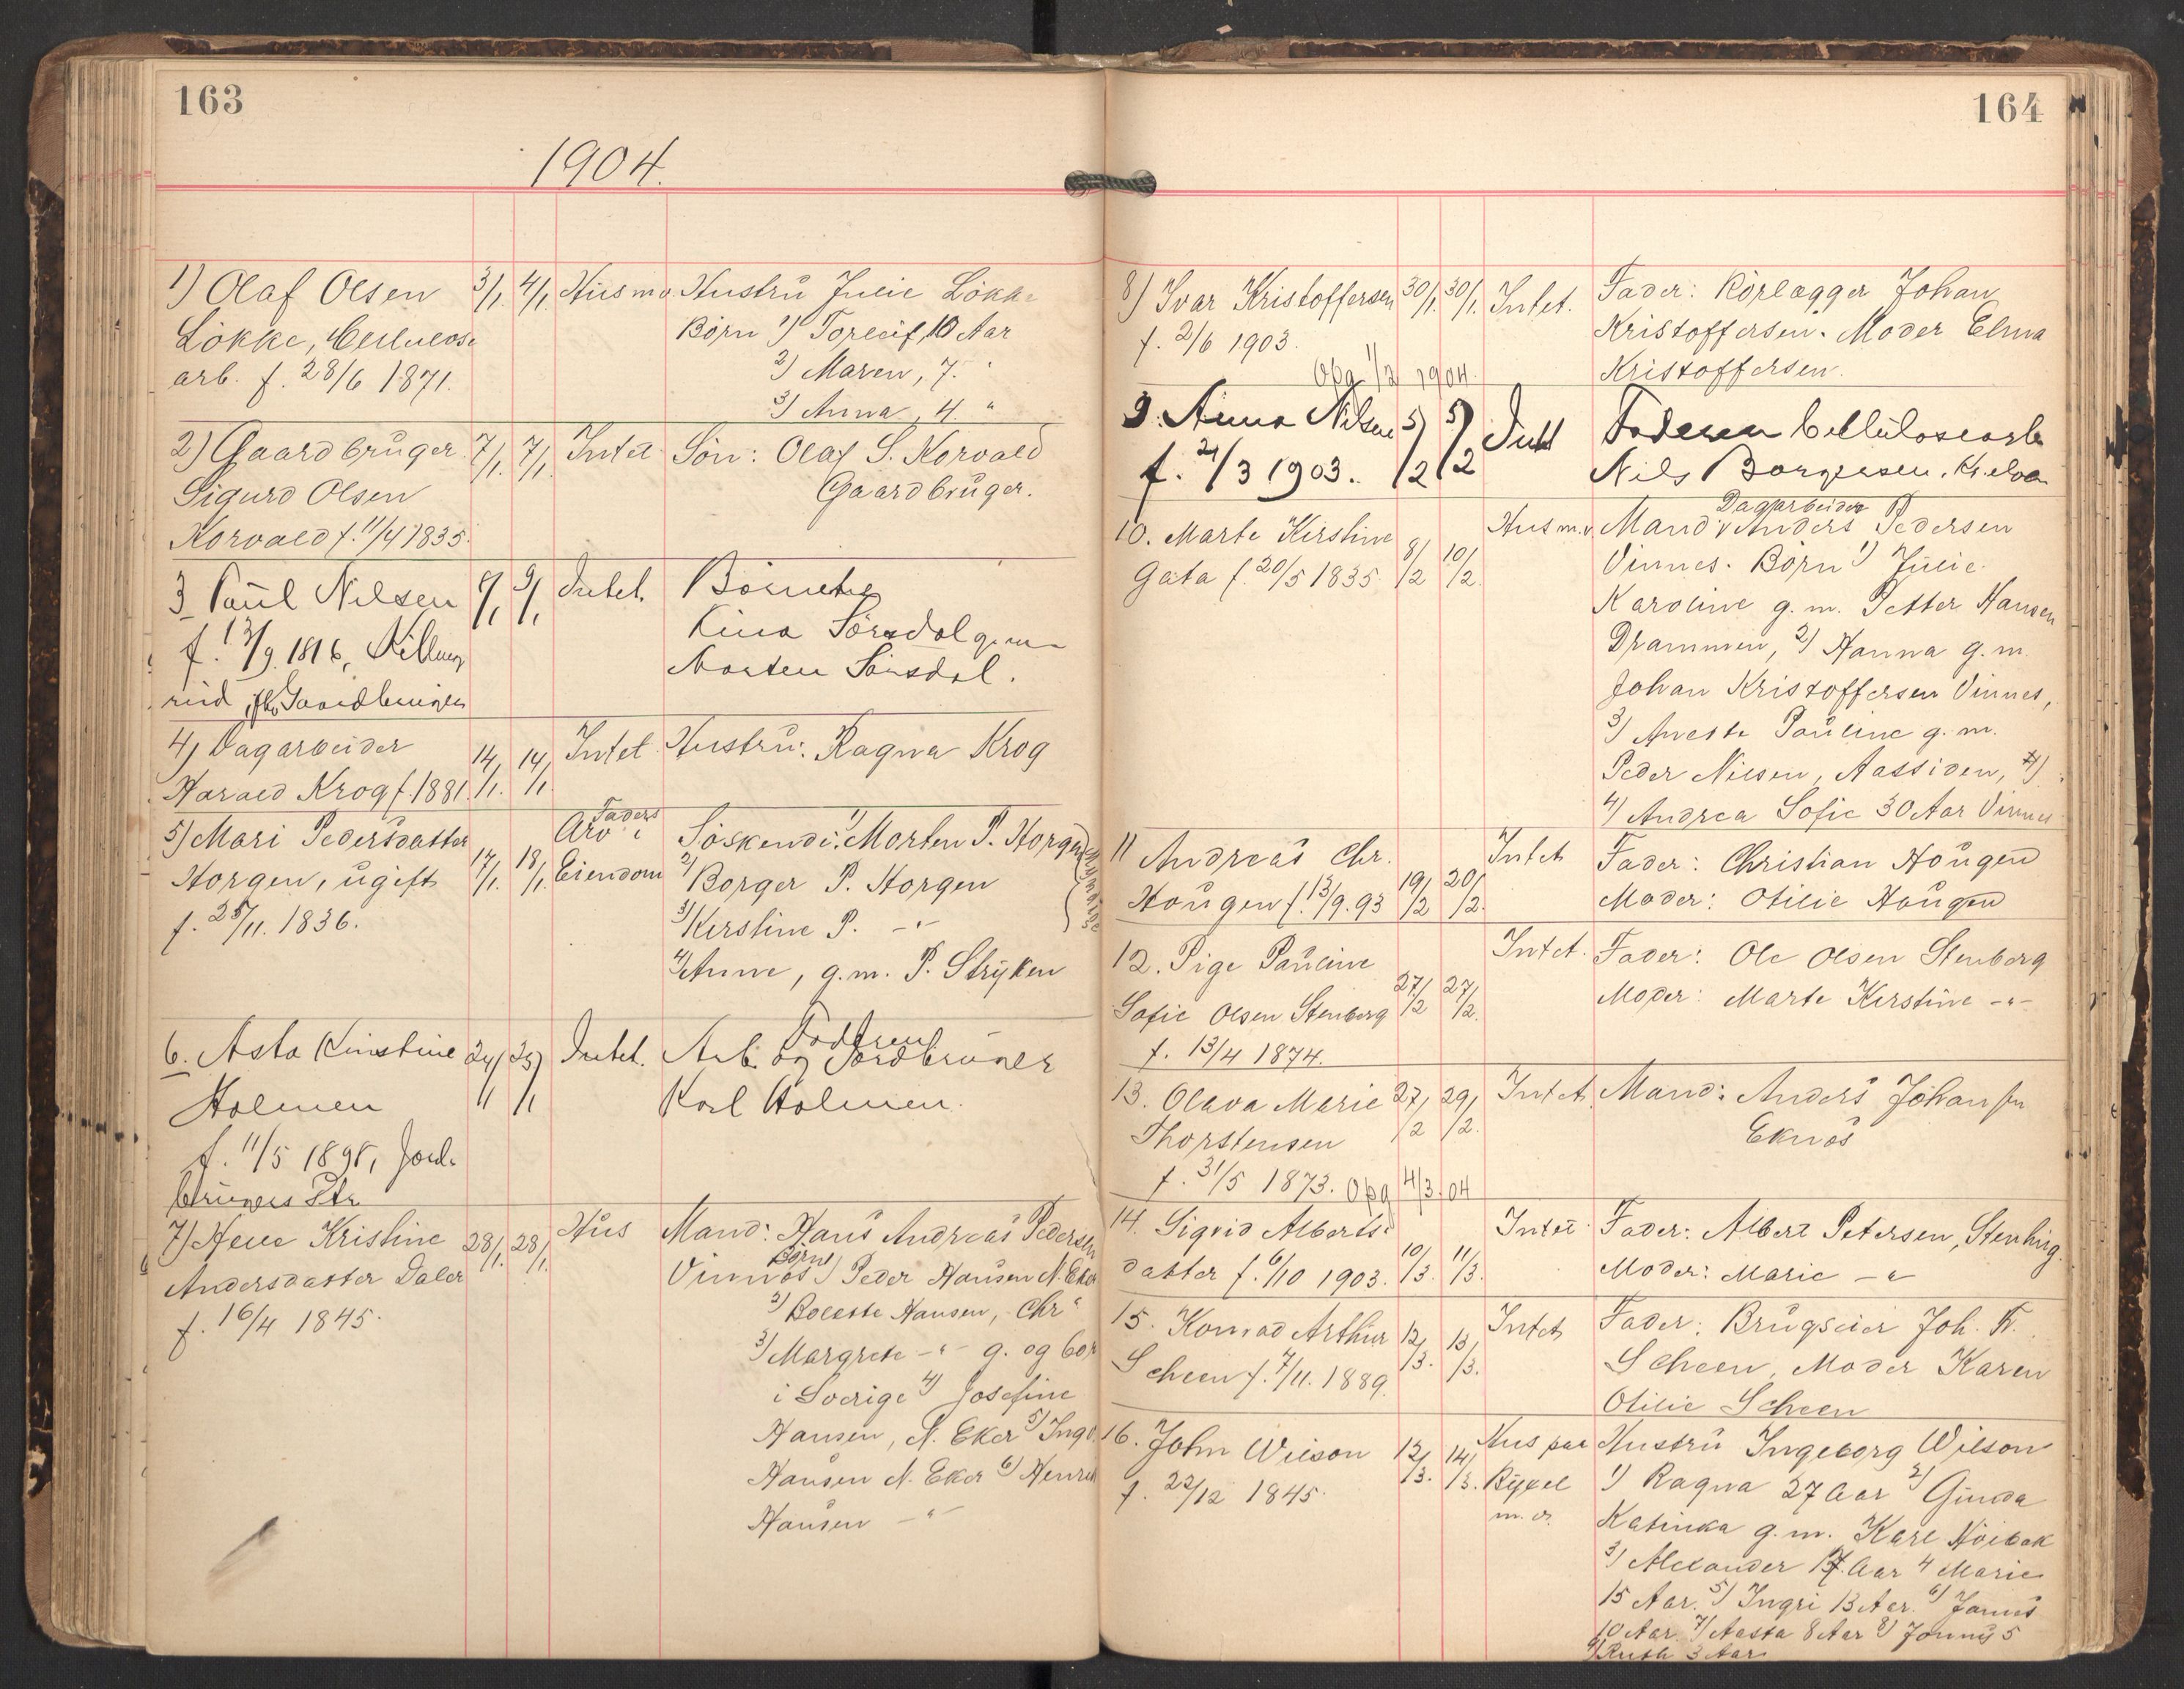 163
1904.
1) Olaf Olsen 3/1 4/1 Hus m.v. Hustru Julie Lökke
Lökke, Cellulose Börn 1) Torleif, 10 Aar
arb. f. 28/6 1871. 2) Maren, 7. "
3) Anna, 4. "
2) Gaardbruger 7/1. 7/1. Intet Sön: Olaf S. Korvald
Sigurd Olsen Gaardbruger.
Korvald f. 11/4 1835.
3 Paul Nilsen 8/1 9/1 Intet. Börnene
f. 13/9. 1816, Lina Sörsdal g. m.
rud, Gaardbruger Morten Sörsdal.
4) Dagarbeider 14/1. 14/1. Intet Hustru: Ragna Krog
Harald Krog f. 1881.
5) Mari Pedersdatter 17/1. 18/1. Faders Arv i Söskende: 1) Morten P. Horgen
Horgen, ugift Eiendom 2) Borger P. Horgen
f. 25/11. 1836. 3) Kirstine P. -"-
4) Anne, g.m. P. Stryken
6. Asta Kristine 24/1 25/1 Intet. Faderen
Arb. og Jordbruger
Holmen Karl Holmen.
f. 11/5 1898, Jord-
brugers Dtr
7) Helle Kristine 28/1. 28/1. Hus Mand: Hans Andreas Pedersen
Andersdatter Daler Vinnæs Börn 1) Peder Hansen N. Eker
f. 16/4 1845. 2) Bolette Hansen, Chr "
3) Margrete -"- g. og bor
i Sverige 4) Josefine
Hansen, N. Eker 5) Ingv.
Hansen N. Eker 6) Henrik
Hansen -"-
164
8) Ivar Kristoffersen 30/1. 30/1. Intet. Fader: Rörlægger Johan
f. 2/6 1903. Kristoffersen. Moder Elma
Opg 1/2 1904. Kristoffersen.
9. Anna Nilsen 5/2 5/2 Intet Faderen Cellulosearb
f. 21/3 1903. Nils Borgersen,
10. Marte Kirstine 8/2 10/2. Hus m.v. Mand: Dagarbeider Anders Pedersen
Gata f. 20/5 1835 Vinnes. Börn 1) Julie
Karoline g. m. Petter Hansen
Drammen, 2) Hanna g. m.
Johan Kristoffersen Vinnes,
3) Anette Pauline g. m.
Peder Nilsen, Aassiden, 4)
4) Andrea Sofie 30 Aar Vinnes
11 Andreas Chr. 19/2 20/2. Intet Fader: Christian Hougen
Hougen f. 13/9. 93 Moder: Otilie Hougen
12. Pige Pauline 27/2 27/2. Intet. Fader: Ole Olsen Stenberg
Sofie Olsen Stenberg Moder: Marte Kirstine -"-
f. 13/4 1874.
13. Olava Marie 27/2 29/2. Intet Mand: Anders Johansen
Thorstensen Eknæs
f. 31/5 1873. Opg 4/3 04
14. Sigrid Alberts- 10/3. 11/3. Intet Fader: Albert Petersen, Stenberg.
datter f. 6/10 1903. Moder: Marie -"-
15. Konrad Arthur 12/3. 13/3. Intet Fader: Brugseier Joh. Fr.
Scheen f. 7/11. 1889. Scheen, Moder Karen
Otilie Scheen
16. John Wilson 12/3. 14/3. Hus paa Hustru Ingeborg Wilson
f. 22/12 1845. Bygsel 1) Ragna 27 Aar 2) Ginda
m. v. Katinka g. m. Karl Höibak
3) Alexander 17 Aar 4 Marie
15 Aar. 5) Ingri 13 Aar. 6) Jams
10 Aar 7) Aasta 8 Aar 8) Jonny 5
9) Ruth 3 Aar